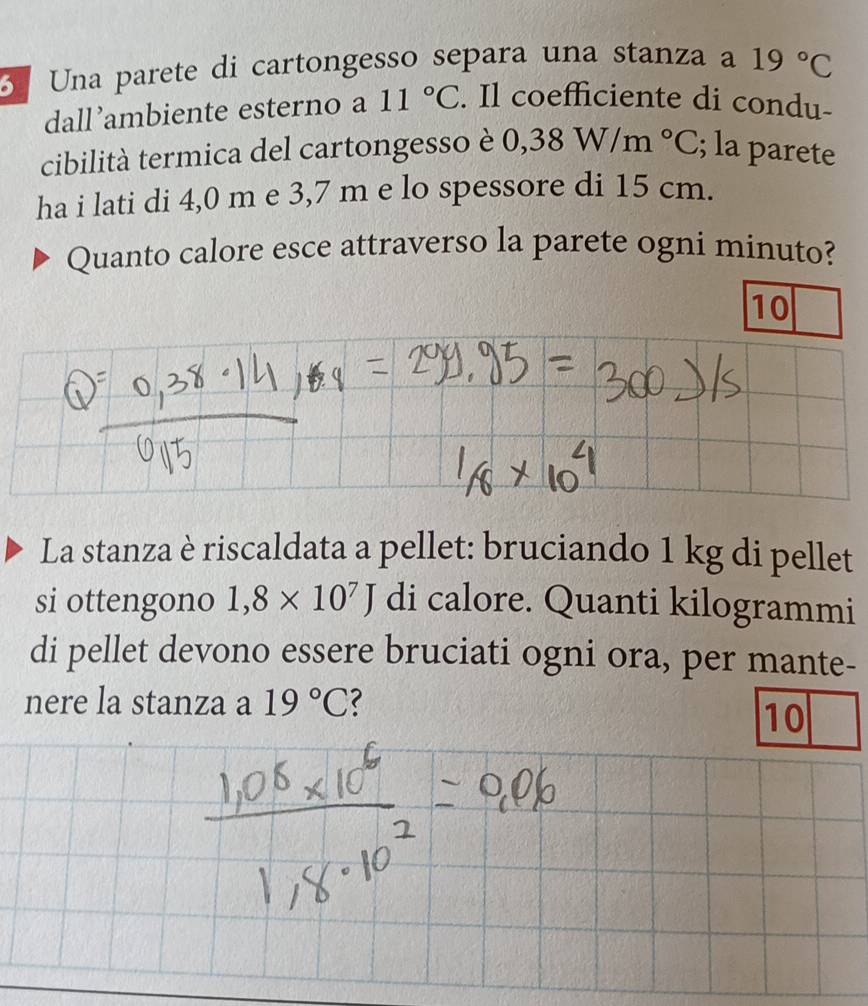 6 Una parete di cartongesso separa una stanza a 19 °C
dall'ambiente esterno a 11 °C. Il coefficiente di condu-
cibilità termica del cartongesso è 0,38 W/m °C; la parete
ha i lati di 4,0 m e 3,7 m e lo spessore di 15 cm.
▶ Quanto calore esce attraverso la parete ogni minuto?
10
Q= 0,38 · 14, = 299.95 = 300 J/s
0,15
1,8 × 10⁴
▶ La stanza è riscaldata a pellet: bruciando 1 kg di pellet
si ottengono 1,8 × 10⁷ J di calore. Quanti kilogrammi
di pellet devono essere bruciati ogni ora, per mante-
nere la stanza a 19 °C?
10
1,08 × 10⁶ = 0,06
1,8 · 10²